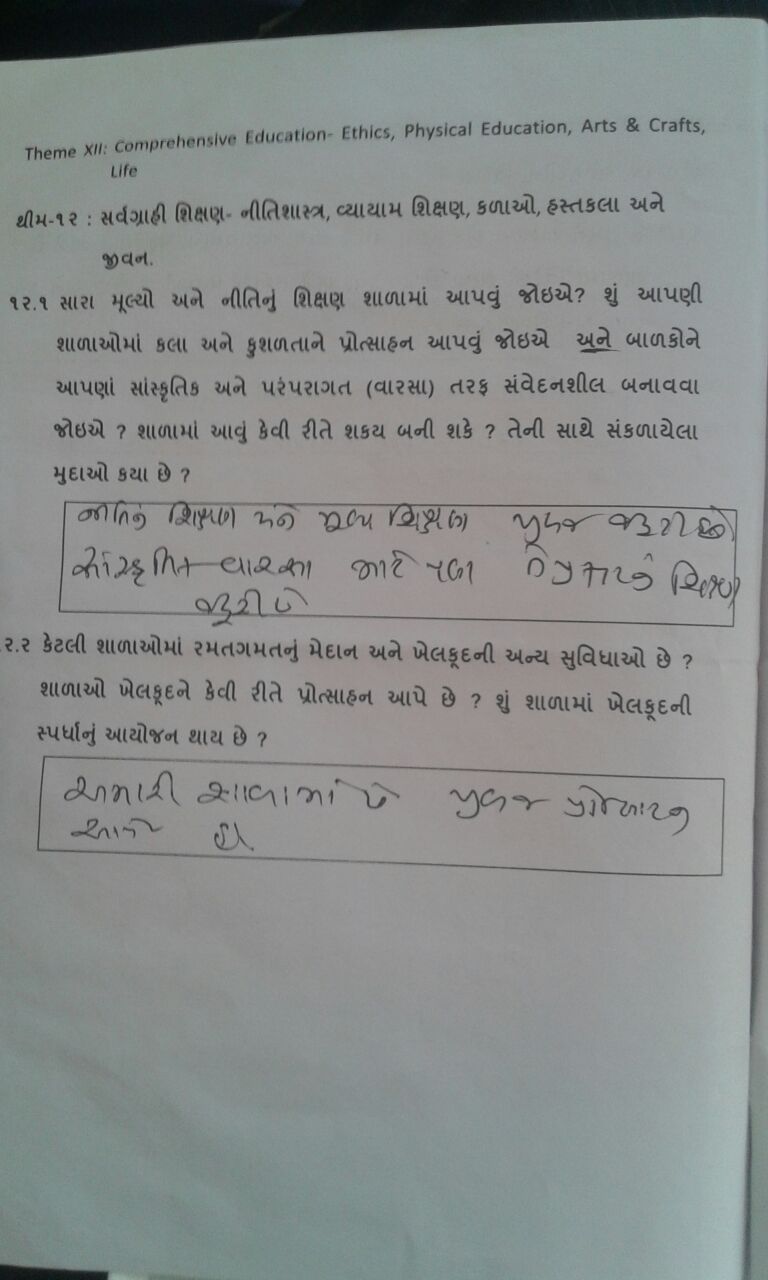 Theme XII: Comprehensive Education- Ethics, Physical Education, Arts & Crafts,
Life
થીમ-૧૨ : સર્વગ્રાહી શિક્ષણ- નીતિશાસ્ત્ર, વ્યાયામ શિક્ષણ, કળાઓ, હસ્તકલા અને
જીવન.
૧૨.૧ સારા મૂલ્યો અને નીતિનું શિક્ષણ શાળામાં આપવું જોઇએ? શું આપણી
શાળાઓમાં કલા અને કુશળતાને પ્રોત્સાહન આપવું જોઇએ અને બાળકોને
આપણાં સાંસ્કૃતિક અને પરંપરાગત (વારસા) તરફ સંવેદનશીલ બનાવવા
જોઇએ ? શાળામાં આવું કેવી રીતે શકય બની શકે ? તેની સાથે સંકળાયેલા
મુદાઓ કયા છે ?
નીતિનું શિક્ષણ અને મૂલ્ય શિક્ષણ ખુબજ જરૂરી છે
સાંસ્કૃતિક વારસા માટે પણ તે પ્રકારનું શિક્ષણ
જરૂરી છે
૨.૨ કેટલી શાળાઓમાં રમતગમતનું મેદાન અને ખેલકૂદની અન્ય સુવિધાઓ છે ?
શાળાઓ ખેલકૂદને કેવી રીતે પ્રોત્સાહન આપે છે ? શું શાળામાં ખેલકૂદની
સ્પર્ધાનું આયોજન થાય છે ?
અમારી શાળામાં છે ખુબજ પ્રોત્સાહન
આપે છે